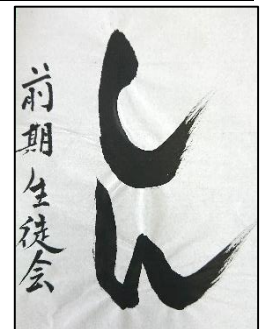 しん
前期生徒会